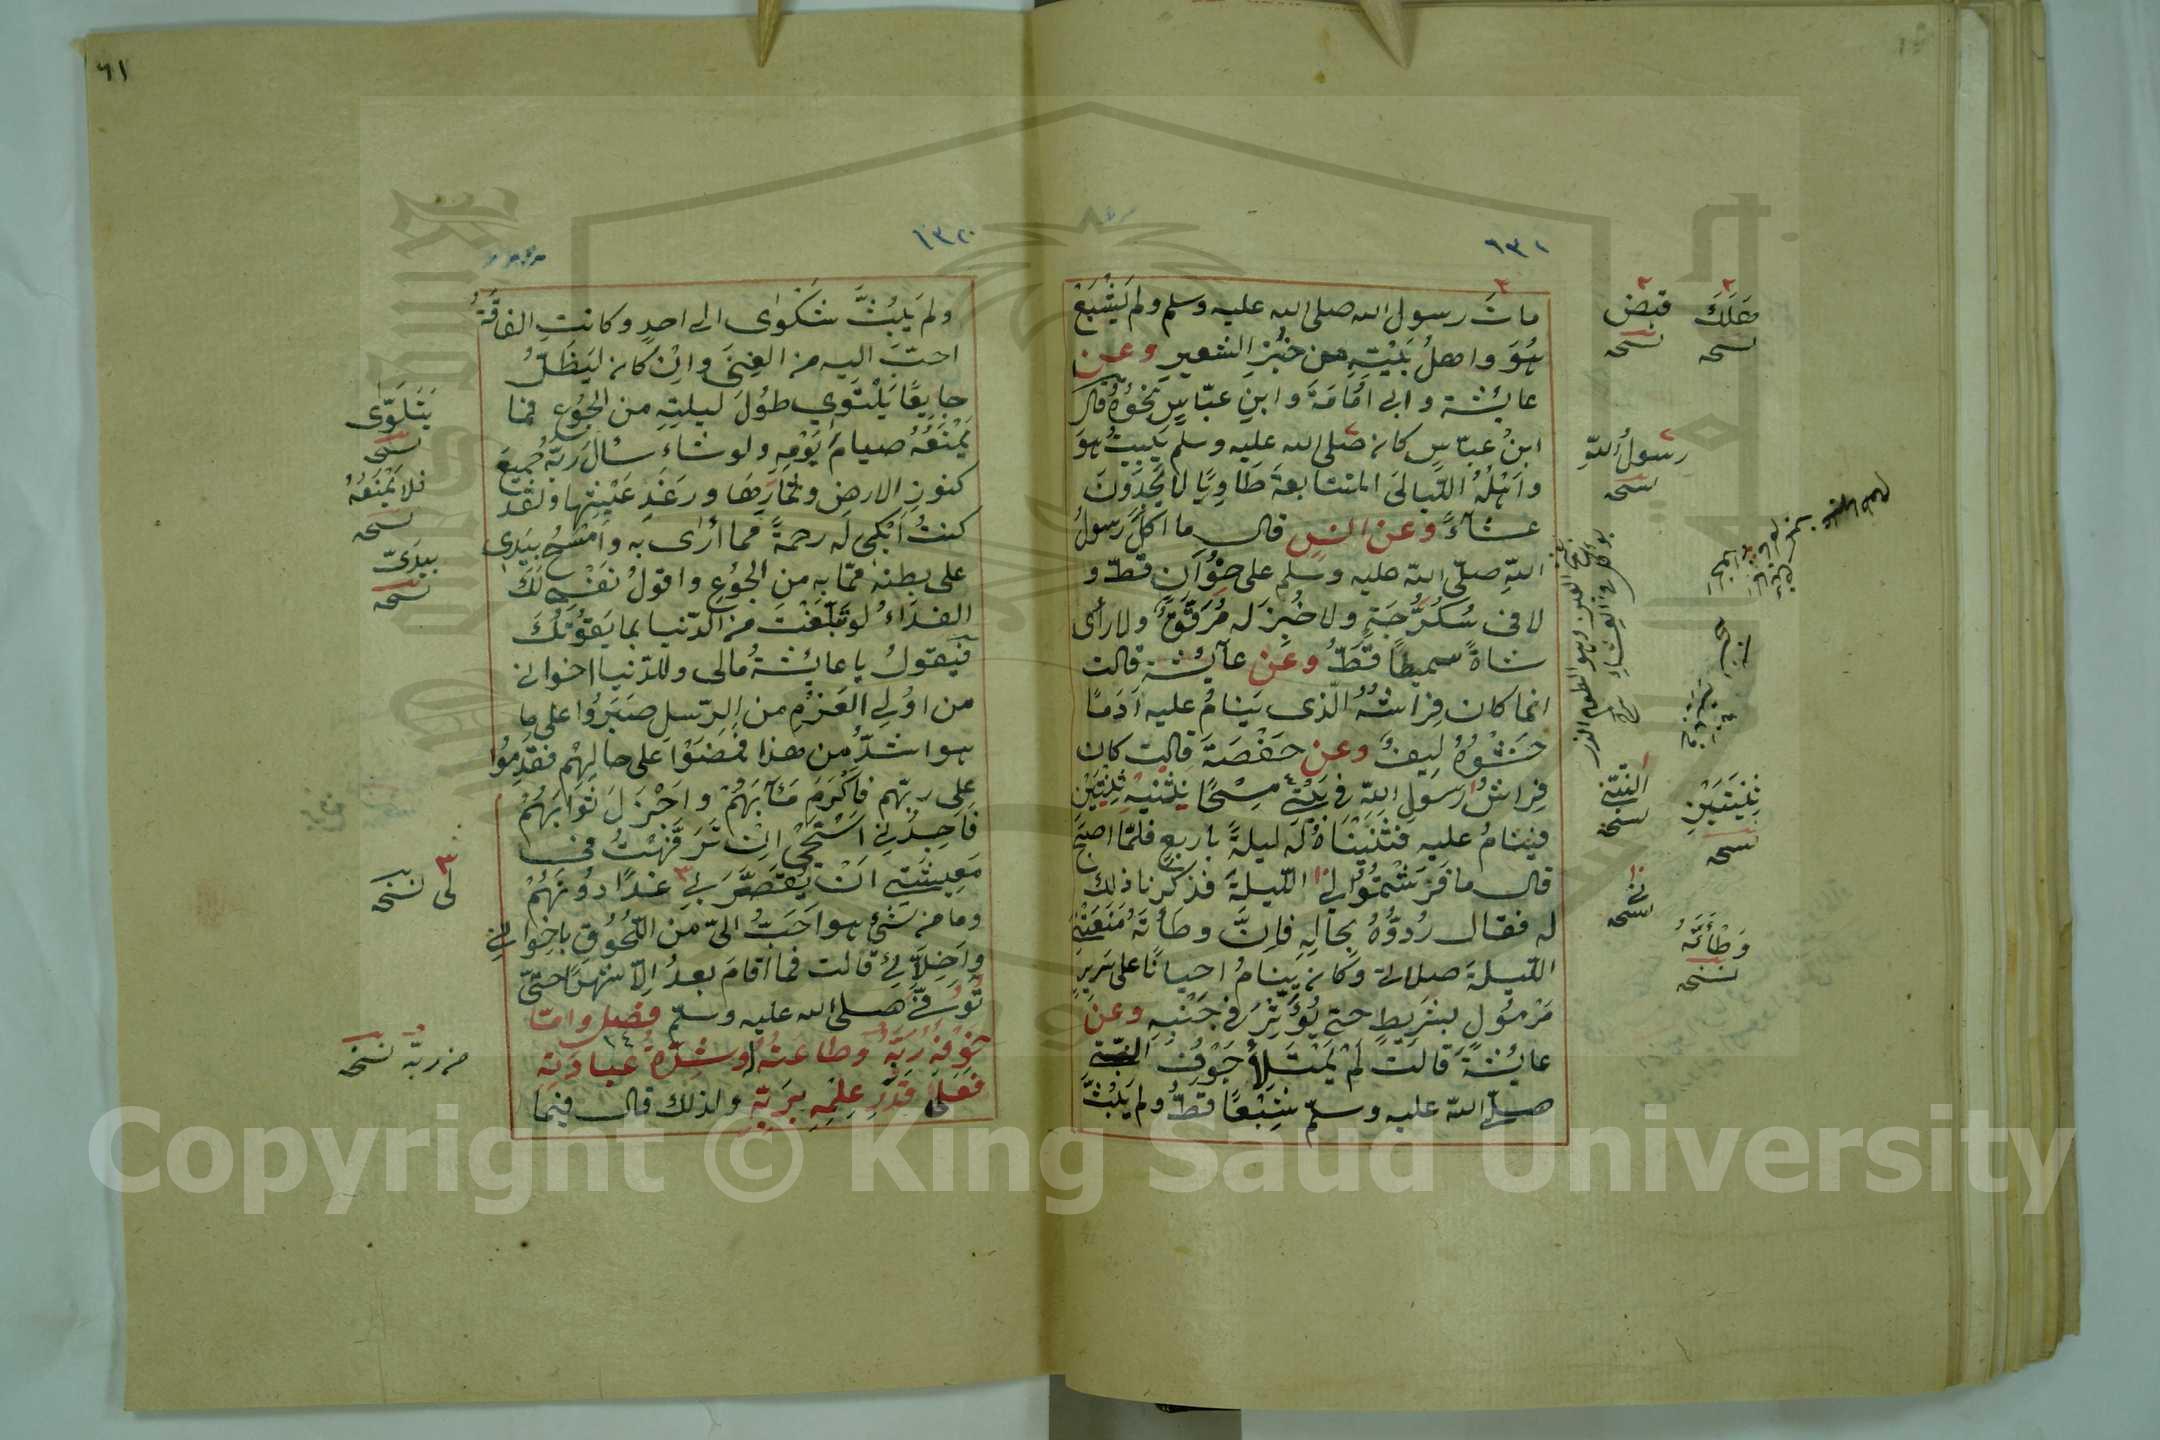 ٦١
١٣٠
٦٣١
مات رسول الله صلى الله عليه وسلم ولم يَشْبَعْ
هُوَ واهلُ بَيْتِهِ من خُبْزِ الشعيرِ وعن
عائشة وابى اُمَامَةَ وابنِ عبّاسٍ نَحْوُهُ قال
ابنُ عبّاسٍ كان صلى الله عليه وسلم يَبِيتُ هوَ
واَهْلُهُ اللّيالىَ المتتابعةَ طَاوِيًا لا يَجِدُونَ
عشاءً وعن انس قال ما اكلَ رسولُ
اللهِ صلّى الله عليه وسلم على خِوَانٍ قطّ و
لا فى سُكُرُّجَةٍ ولا خُبِزَ له مُرَقَّقٌ ولا رأى
شاةً سميطًا قطُّ وعَن عائشة قالت
انما كان فِراشُهُ الّذى يَنامُ عليه اَدَمًا
حَشْوُهُ لِيفٌ وعن حَفْصَةَ قالت كان
فِراشُ رسولِ اللهِ فى بَيْتِى مِسْحًا نَثْنِيهِ ثِنْيَتَيْنِ
فينامُ عليه فَثَنَيْنَاهُ له ليلةً باربعٍ فلمّا اصبح
قال ما فَرَشْتُمُوا لِى الليلةَ فذكرنا ذلك
له فقال رُدُّوهُ بِحَالِهِ فإنَّ وطأتَهُ مَنَعَتْنِى
الليلةَ صلاتى وكان يَنامُ احيانًا على سَرِيرٍ
مَرْمُولٍ بشَرِيطٍ حتى يُؤَثِّرَ فى جَنْبِهِ وعن
عائشةَ قالت لَمْ يَمْتَلِأْ جَوْفُ النبى
صلّى الله عليه وسلّم شِبَعًا قطُّ ولم يَبُثَّ
هَلَكَ
نسخه
قبض
نسخه
رسولُ اللهِ
نسخه
النبىّ
نسخه
ثِنْيَتَيْنِ
نسخه
نسخه
وَطْأَتَهُ
نسخه
ولَم يَبُثَّ شَكْوٰى الى احدٍ وكانتِ الفاقةُ
احبّ اليه من الغِنَى وانْ كان ليَظَلُّ
جايعًا يَلْتَوِى طُولَ ليلتِهِ من الجُوعِ فما
يَمْنَعُهُ صيامَ يَوْمِهِ ولو شاءَ سألَ رَبَّهُ جميعَ
كنوزِ الارضِ وثمارِهَا ورَغَدِ عَيْشِها ولقد
كنتُ اَبْكِى له رحمةً مما أرٰى به واَمْسَحُ بيَدِى
على بطنهِ ممّا به من الجُوعِ واقولُ نَفْسِى لَكَ
الفداءُ لو تَبَلَّغْتَ من الدّنيا بما يَقُوتُكَ
فَيقولُ يا عايشةُ مالى وللدّنيا اخوانى
من اوُلِى العَزْمِ من الرّسلِ صَبَرُوا على ما
هو اشدُّ من هذا فمَضَوْا على حالِهِمْ فقَدِمُوا
على ربّهم فاَكْرَمَ مَآبَهُمْ واَجْزَلَ ثَوَابَهُمْ
فاَجِدُنِى اَسْتَحْيِى انْ تَرَفَّهْتُ فى
مَعِيشَتِى اَنْ يُقَصَّرَ بِى غدًا دونَهُمْ
وما من شئٍ هو احَبُّ الىّ من اللُّحُوقِ باِخوانى
واَخِلّائِى قالت فما اَقامَ بعدُ اِلّا شهرًا حتىّ
تُوُفِّىَ صلى الله عليه وسلّم فَصْلٌ وامّا
خوفُه رَبَّهُ وطاعتُهُ له وشِدّةُ عبادتِهِ
فعَلى قَدْرِ عِلْمِهِ برَبِّهِ ولذلك قال فيما
يَتَلَوّٰى
نسخه
فلا يَمْنَعُهُ
نسخه
بيدىّ
نسخه
٣
لى نسخه
من ربّه نسخه
Copyright © King Saud University